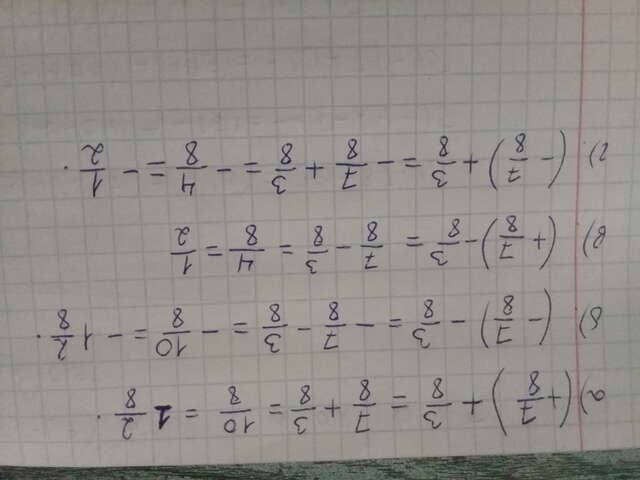 а) (+7/8) + 3/8 = 7/8 + 3/8 = 10/8 = 1 2/8.
б) (-7/8) - 3/8 = -7/8 - 3/8 = -10/8 = -1 2/8.
в) (+7/8) - 3/8 = 7/8 - 3/8 = 4/8 = 1/2
г). (-7/8) + 3/8 = -7/8 + 3/8 = -4/8 = -1/2.